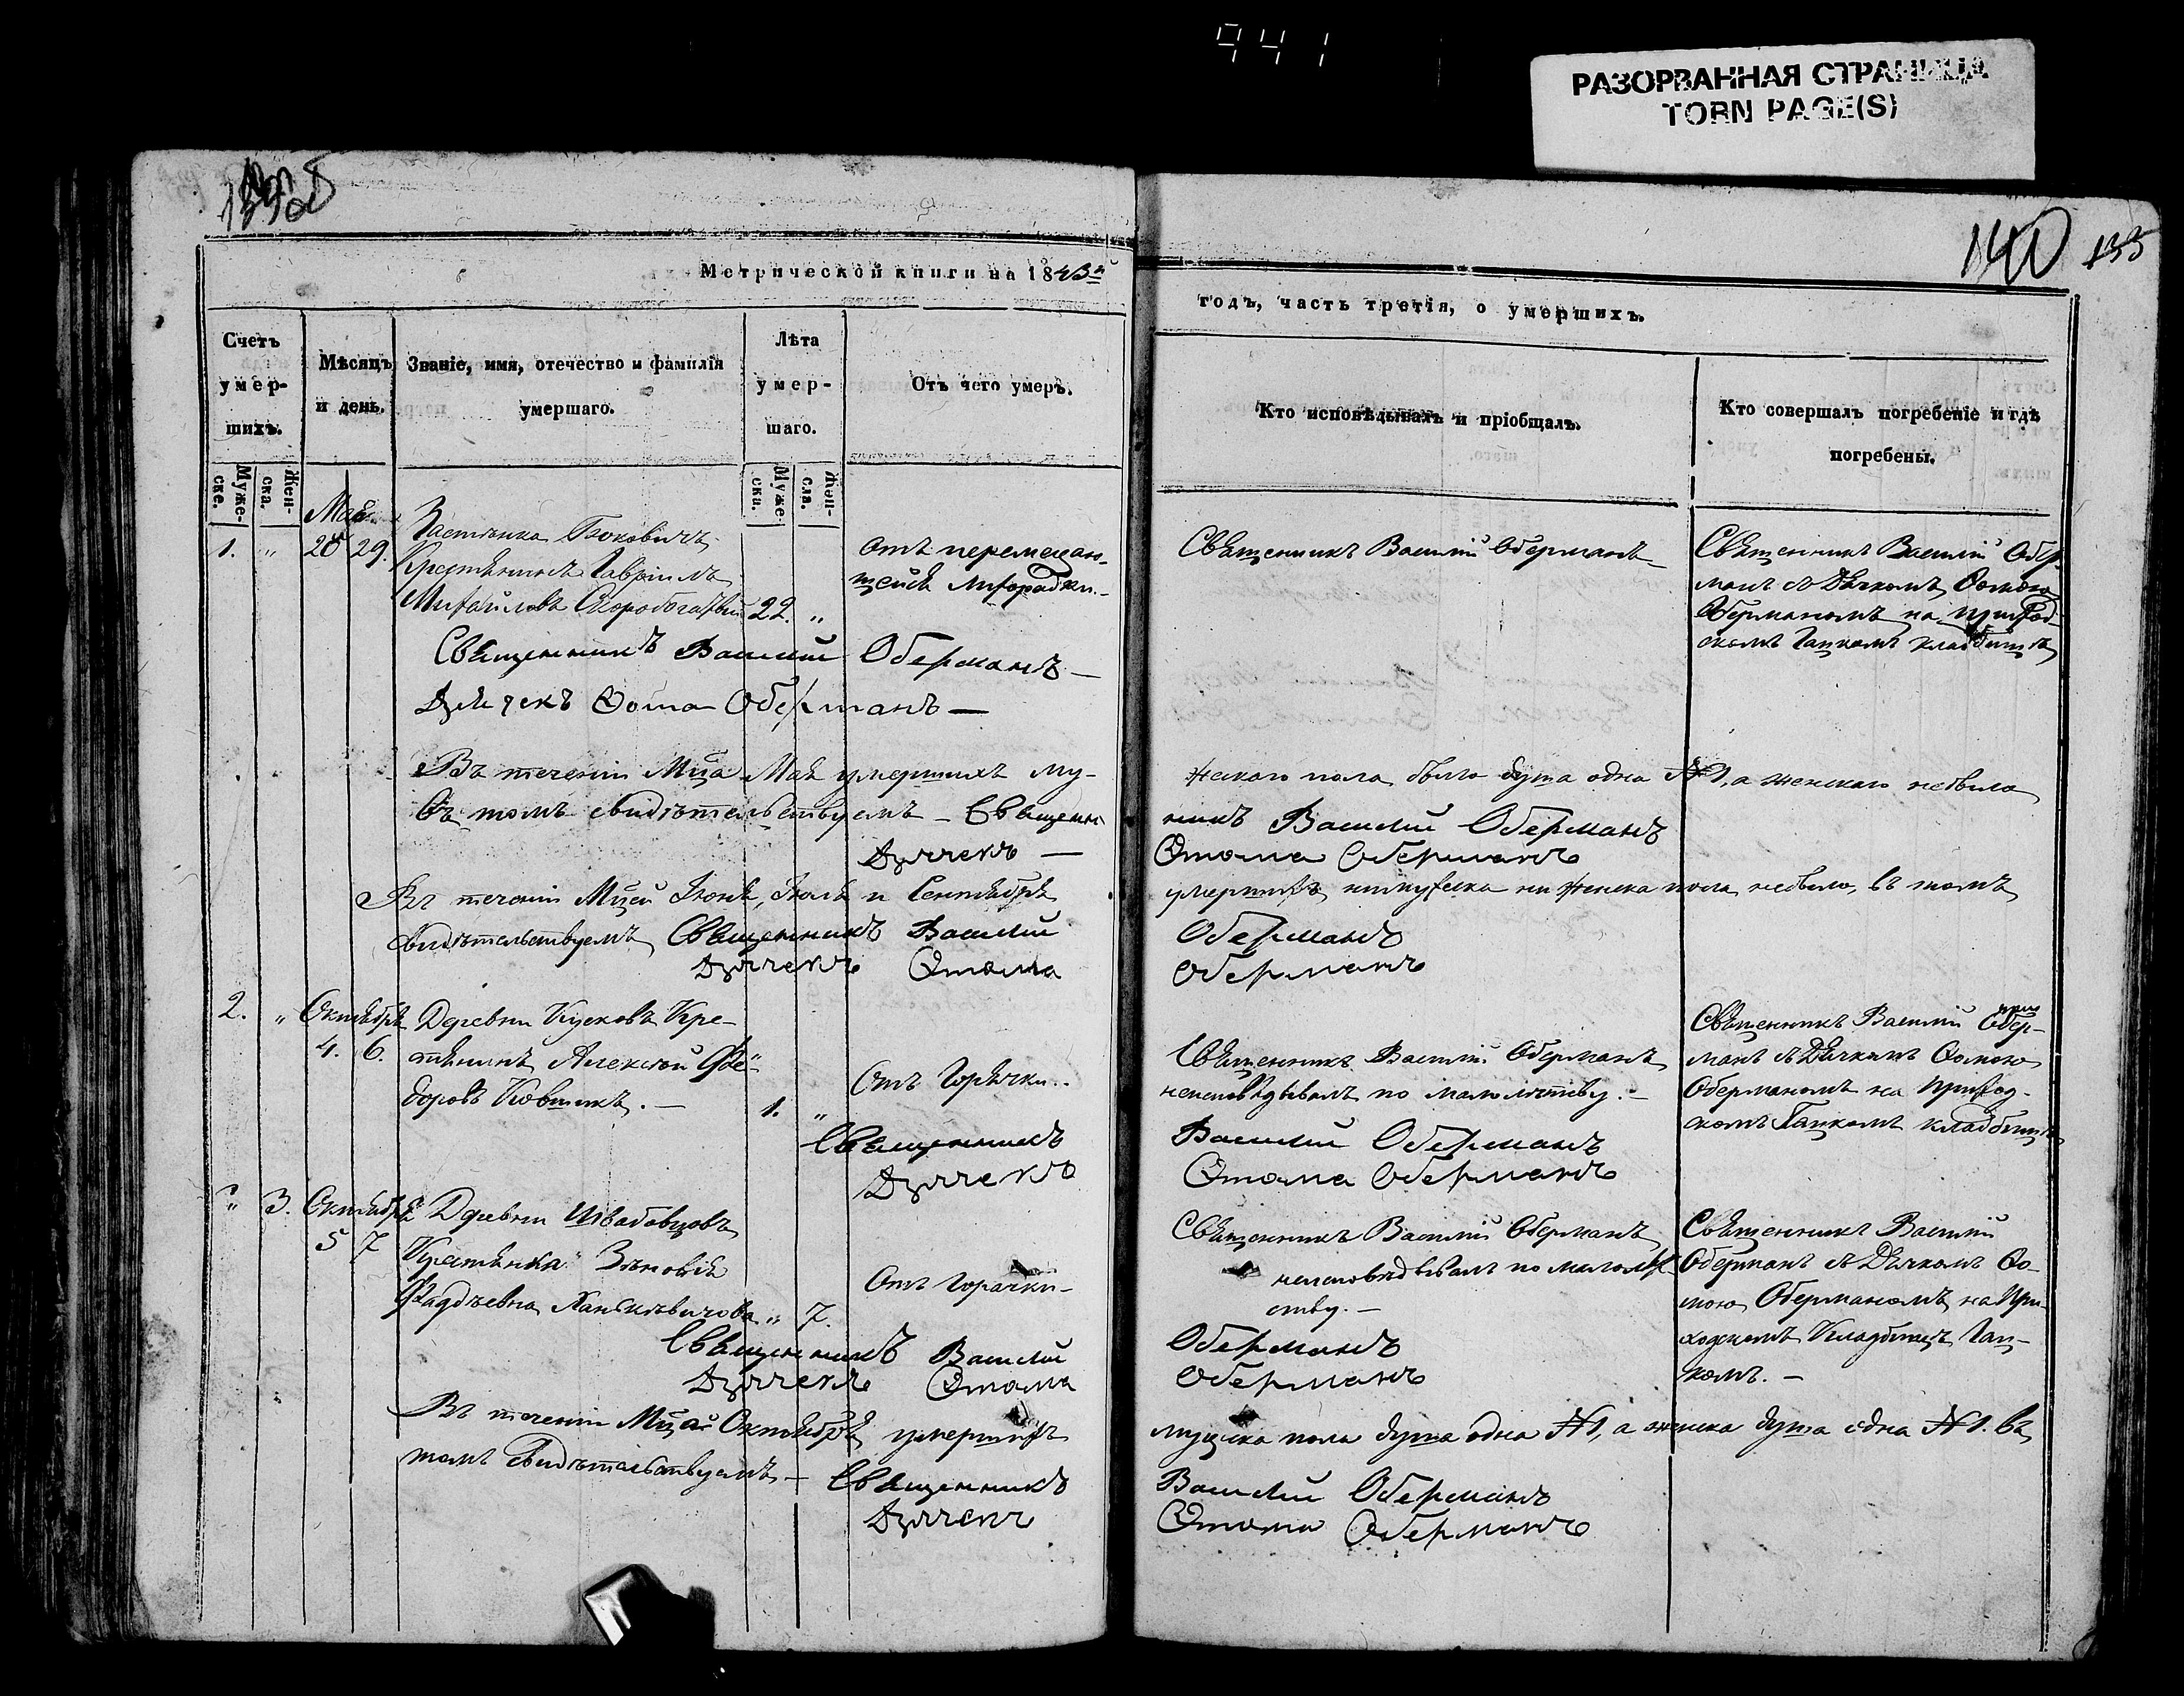 441
РАЗОРВАННАЯ СТРАНИЦА
TORN PAGE(S)
140 133
Метрической книги на 1843й
годъ, часть третія, о умершихъ.
Счетъ умер-шихъ.
Муже-ске.
Жен-ска.
Мѣсяцъ и день.
Званіе, имя, отечество и фамилія умершаго.
Лѣта умер-шаго.
Муже-ски.
Жен-
Отъ чего умеръ.
Кто исповѣдывалъ и пріобщалъ.
Кто совершалъ погребеніе и гдѣ погребены.
Мая
1. " 29.
Крестянинъ Гавріилъ
Михайловъ Скоробогатый 22. "
отъ перемежаю-
щейся лихорадки.-
Священникъ Василій Оберманъ
Священникъ Василій Обер-
манъ съ Дячкомъ Фомою
Оберманомъ на приход-
скомъ кладбищѣ
Священникъ Василій Оберманъ -
Дзячекъ Фома Оберманъ —
Въ теченіи Мца Мая умершихъ му-
жескаго пола было душа одна №1, а женскаго небыло
Въ томъ свидѣтельствуемъ - Священ
никъ Василій Оберманъ
Дзячекъ —
Фтома Оберманъ
Въ теченіи Мцей Іюня, Іюля и Сентября
умершихъ ни мужеска ни женска пола небыло, въ томъ
свидѣтельствуемъ Священникъ Василій
Оберманъ
Дзячекъ Фтома
Оберманъ
2. " Октября
4. 6.
Деревни Кре-
стянинъ Алексѣй Фе-
доровъ Ковшикъ. — 1. "
Отъ Горячки..
Священникъ Василій Оберманъ
неисповѣдывалъ по малолѣтству. -
Священникъ Василій Обер-
манъ съ Дячкомъ Фомою
Оберманомъ на приход-
скомъ кладбищѣ
Священникъ
Василій Оберманъ
Дзячекъ
Фтома Оберманъ
" 3. Октября
5 7
Деревни Швабовцовъ
Крестянка Зѣновія
Фадѣевна " 7.
Отъ Горячки -
Священникъ Василій Оберманъ
неисповѣдывалъ по малолѣт-
ству. -
Священникъ Василій
Оберманъ съ Дячкомъ Фо-
мою Оберманомъ на При-
ходскомъ Кладбищѣ
скомъ. -
Священникъ Василій
Оберманъ
Дзячекъ Фтома
Оберманъ
Въ теченіи Мца Октября умершихъ
мужеска пола душа одна №1, а женска душа една №1. въ
томъ свидѣтельствуемъ - Священникъ
Василій Оберманъ
Дзячекъ
Фтома Оберманъ